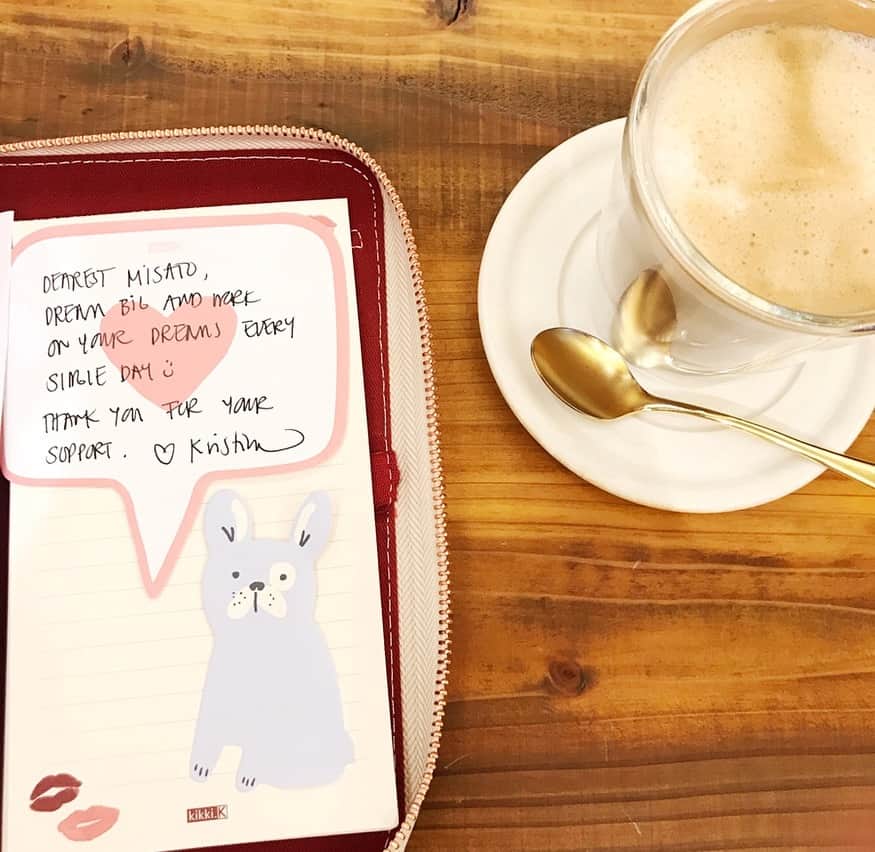 DEAREST MISATO,
DREAM BIG AND WORK
ON YOUR DREAMS EVERY
SINGLE DAY
THANK YOU FOR YOUR
SUPPORT. ♡ Kristina
kikki.K